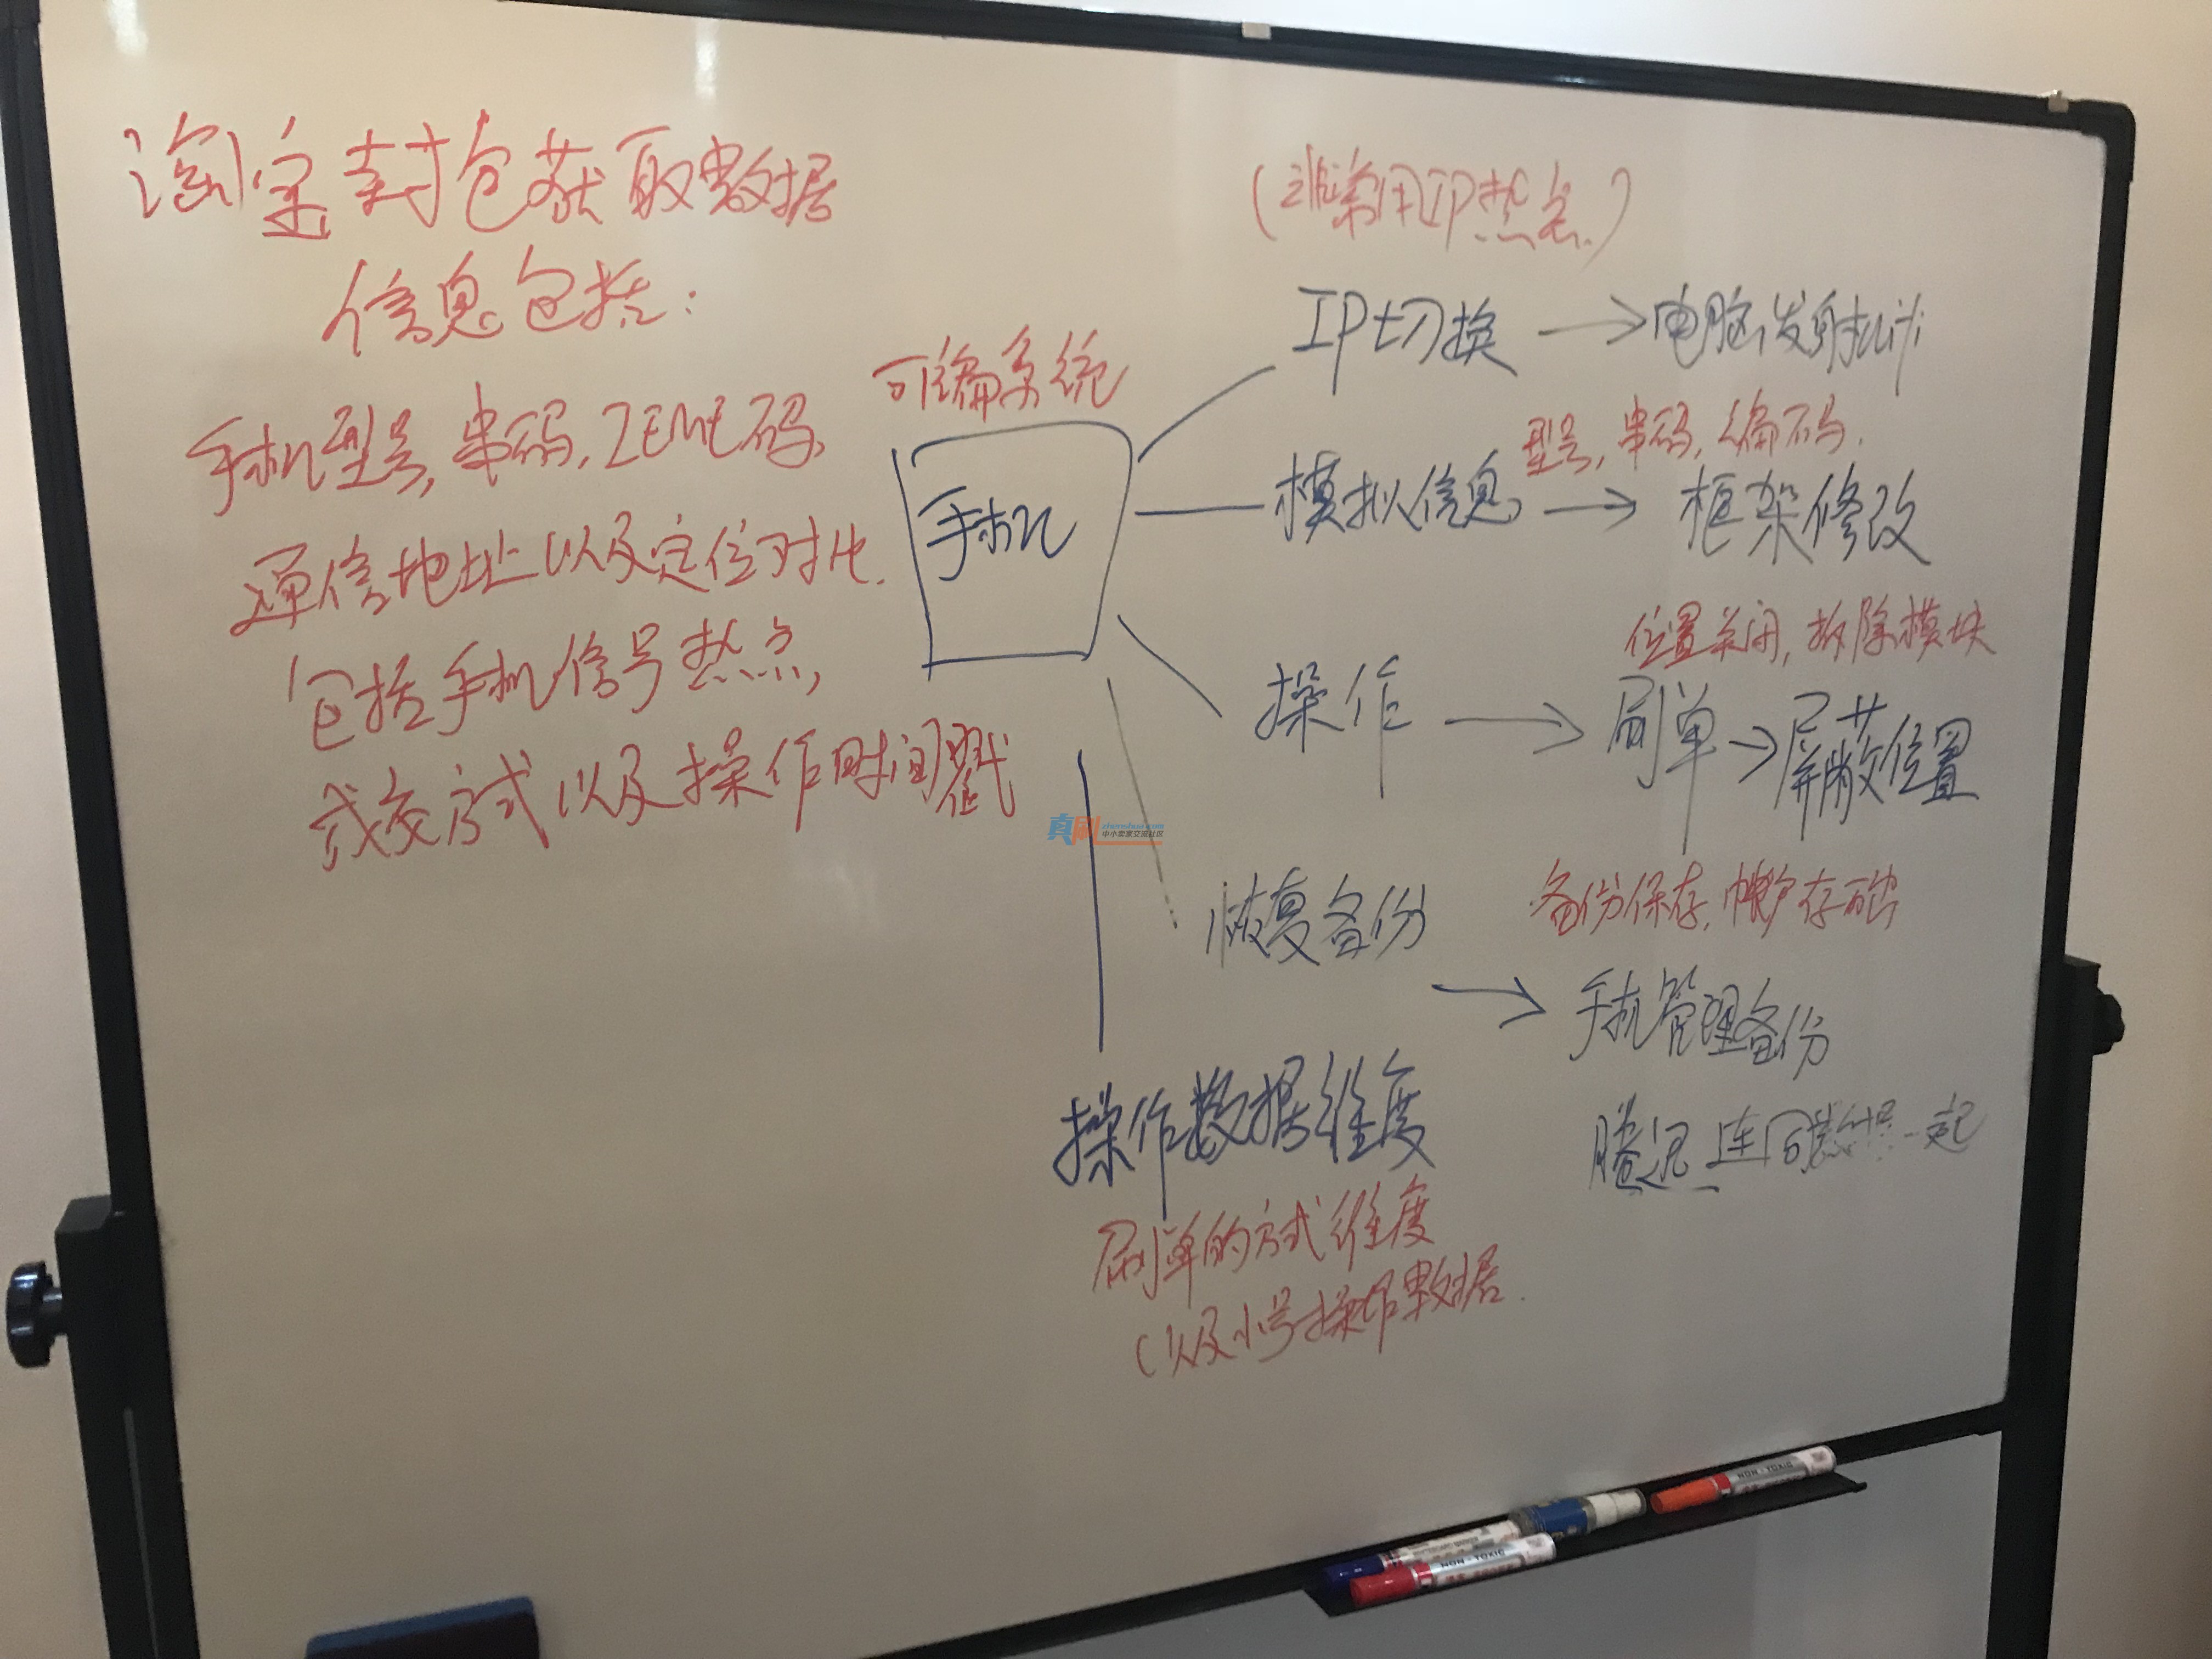 淘宝封包获取数据
信息包括：
手机型号，串码，IEME码，
通信地址以及定位对比．
包括手机信号热点，
成交方式以及操作时间戳
可编系统
手机
（非常用IP热点）
IP切换 → 电脑发射
型号，串码，编码．
模拟信息 → 框架修改
位置关闭，拆除模块
操作 → 刷单 → 屏蔽位置
备份保存，帐户存
恢复备份 → 手机管理备份
连同 一起
操作数据维度
刷单的方式维度
（以及小号操作数据．
真刷
zhenshua.com
中小卖家交流社区
NON-TOXIC
NON-TOXIC